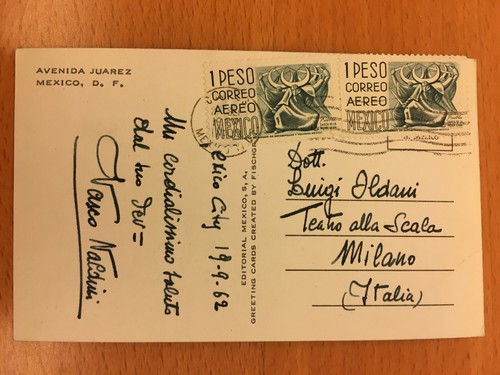 AVENIDA JUAREZ
MEXICO, D. F.
1 PESO
CORREO
AEREO
MEXICO
1 PESO
CORREO
AEREO
MEXICO
Mexico City 19-9-62
Un cordialissimo saluto
dal suo dev=
EDITORIAL MEXICO, S. A.
GREETING CARDS CREATED BY FISCHGR
Dott.
Luigi Oldani
Teatro alla Scala
Milano
(Italia)